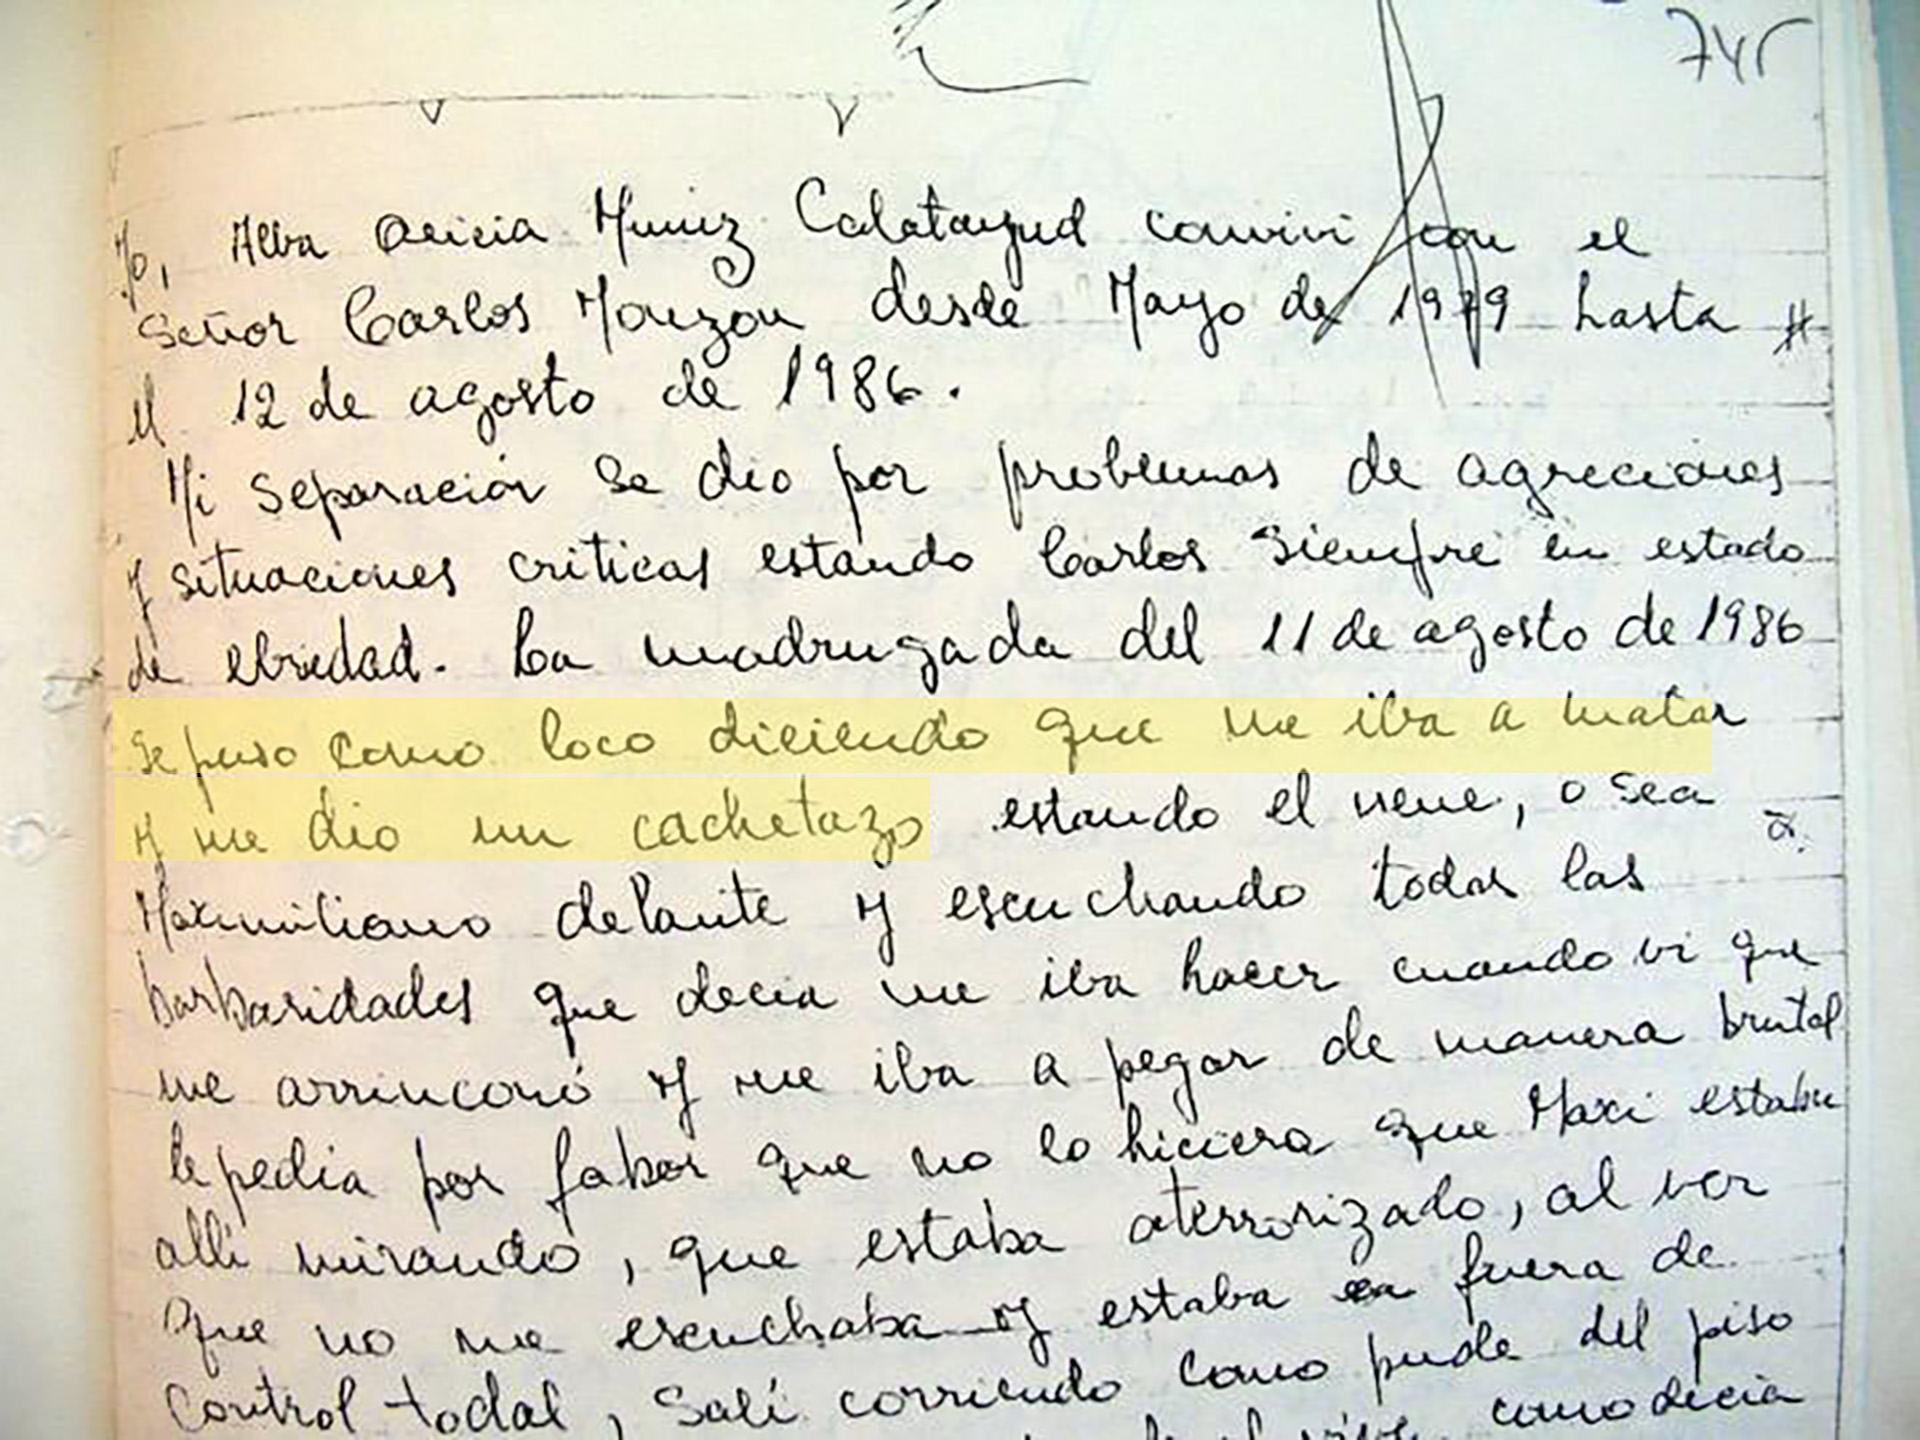 745
Yo, Alba Alicia Muniz Calatayud conviví con el
Señor Carlos Monzon desde Mayo de 1979 hasta
el 12 de agosto de 1986.
Mi separación se dio por problemas de agreciones
y situaciones criticas estando Carlos siempre en estado
de ebriedad. La madrugada del 11 de agosto de 1986
se puso como loco diciendo que me iba a matar
y me dio un cachetazo estando el nene, o sea
Maximiliano delante y escuchando todas las
barbaridades que decia me iba hacer cuando vi que
me arrinconó y me iba a pegar de manera brutal
le pedia por fabor que no lo hiciera que Maxi estaba
alli mirando, que estaba aterrorizado, al ver
que no me escuchaba y estaba fuera de
control todal, Salí corriendo como pude del piso
como decia